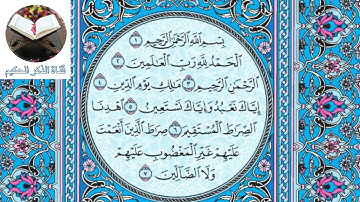 قناة الذكر الحكيم
بِسْمِ اللَّهِ الرَّحْمَٰنِ الرَّحِيمِ ١
الْحَمْدُ لِلَّهِ رَبِّ الْعَالَمِينَ ٢
الرَّحْمَٰنِ الرَّحِيمِ ٣ مَالِكِ يَوْمِ الدِّينِ ٤
إِيَّاكَ نَعْبُدُ وَإِيَّاكَ نَسْتَعِينُ ٥ اهْدِنَا
الصِّرَاطَ الْمُسْتَقِيمَ ٦ صِرَاطَ الَّذِينَ أَنْعَمْتَ
عَلَيْهِمْ غَيْرِ الْمَغْضُوبِ عَلَيْهِمْ
وَلَا الضَّالِّينَ ٧